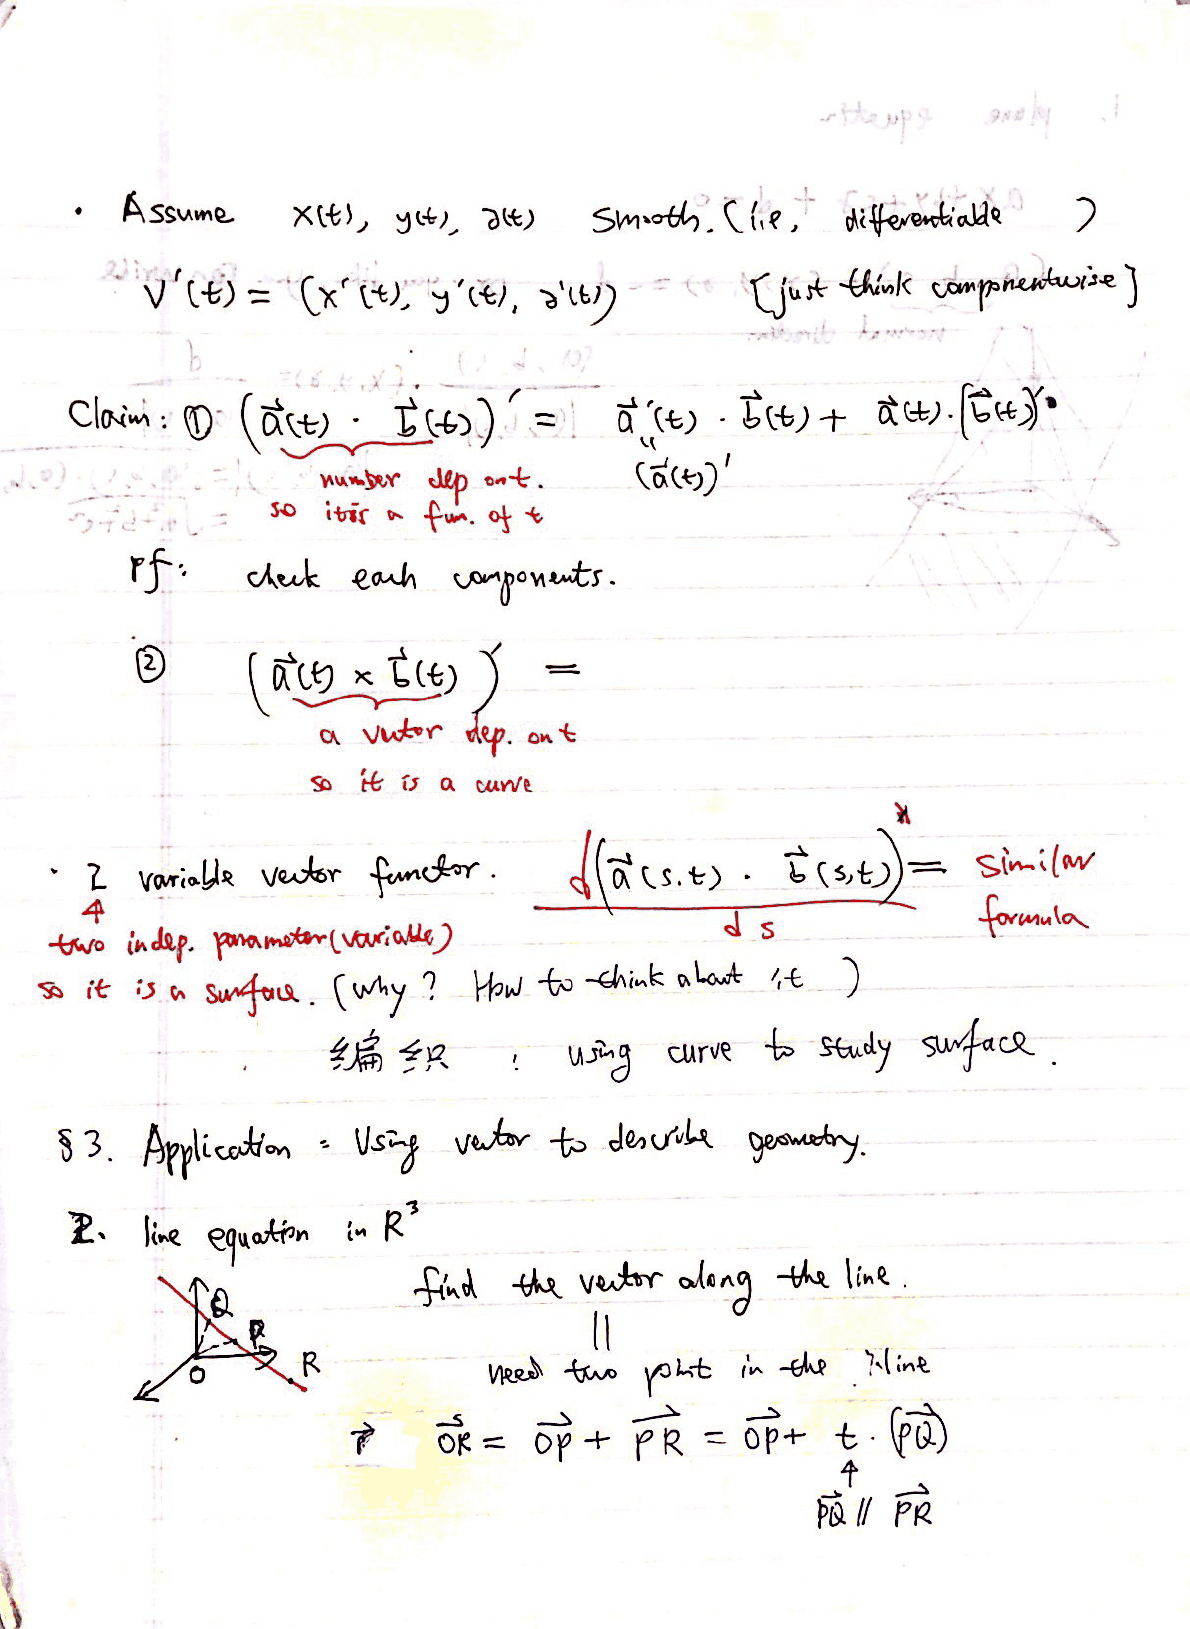 · Assume x(t), y(t), z(t) smooth. (i.e, differentiable )
V'(t) = (x'(t), y'(t), z'(t)) [just think componentwise]
Claim: ① (a⃗(t) · b⃗(t))' = a⃗'(t) · b⃗(t) + a⃗(t) · (b⃗(t))'
number dep on t. (a⃗(t))'
so it is a fun. of t
pf: check each components.
② (a⃗(t) × b⃗(t))' =
a vector dep. on t
so it is a curve
· 2 variable vector functor. d(a⃗(s,t) · b⃗(s,t)) = similar
ds formula
two indep. parameter (variable)
so it is a surface. (why? How to think about it )
编织 : using curve to study surface.
§3. Application : Using vector to describe geometry.
2. line equation in R³
find the vector along the line.
Q
P
O R
need two point in the line
OR⃗ = OP⃗ + PR⃗ = OP⃗ + t · (PQ⃗)
PQ⃗ // PR⃗